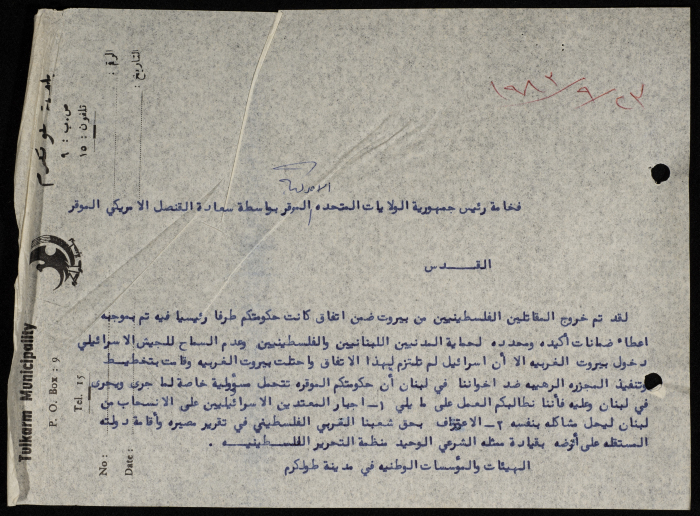 بلدية طولكرم
ص.ب : ٩
تلفون : ١٥
الرقم :
التاريخ :
Tulkarm Municipality
P. O. Box : 9
Tel. 15
No :
Date :
١٩٨٢/٩/٢٣
الامريكية
فخامة رئيس جمهورية الولايات المتحده الموقر بواسطة سعادة القنصل الامريكي الموقر
القـــدس
لقد تم خروج المقاتلين الفلسطينيين من بيروت ضمن اتفاق كانت حكومتكم طرفا رئيسيا فيه تم بموجبه
اعطاء ضمانات أكيده ومحدده لحماية المدنيين اللبنانيين والفلسطينيين وعدم السماح للجيش الاسرائيلي
دخول بيروت الغربيه الا أن اسرائيل لم تلتزم لهذا الاتفاق واحتلت بيروت الغربيه وقامت بتخطيط
وتنفيذ المجزره الرهيبه ضد اخواننا في لبنان أن حكومتكم الموقره تتحمل مسؤولية خاصة لما جرى ويجرى
في لبنان وعليه فأننا نطالبكم العمل على ما يلي ١- اجبار المعتدين الاسرائيليين على الانسحاب من
لبنان ليحل مشاكله بنفسه ٢- الاعتراف بحق شعبنا العربي الفلسطيني في تقرير مصيره وأقامة دولته
المستقله على أرضه بقيادة ممثله الشرعي الوحيد منظمة التحرير الفلسطينيـــه .
الهيئات والمؤسسات الوطنيه في مدينة طولكرم